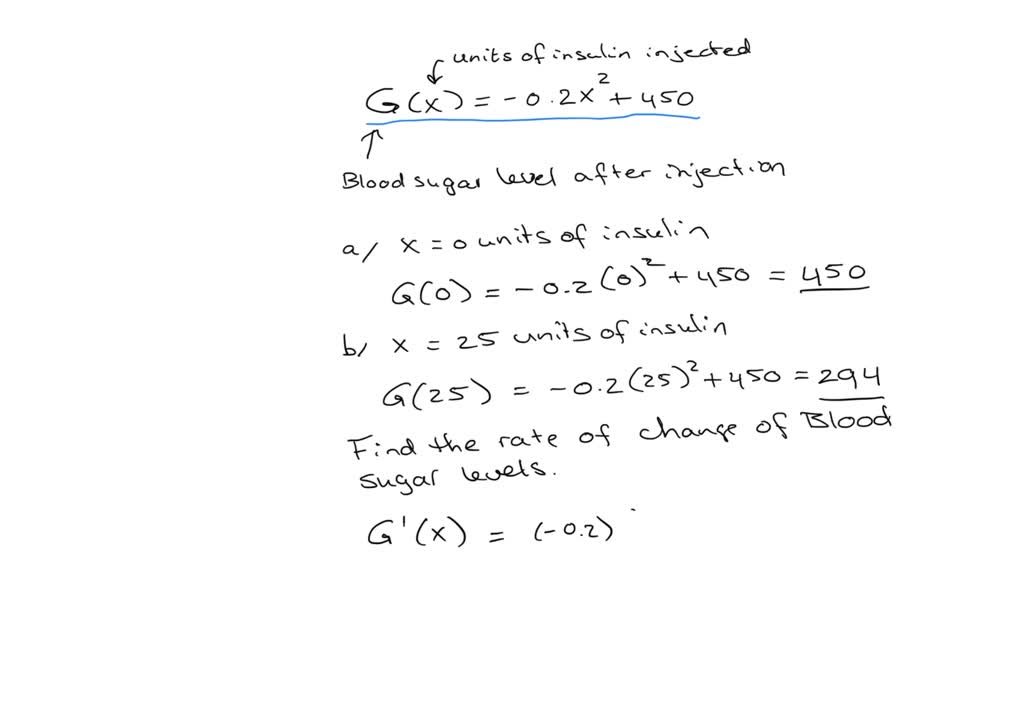 units of insulin injected
G(x) = -0.2x² + 450
Blood sugar level after injection
a/ x = 0 units of insulin
G(0) = -0.2(0)² + 450 = 450
b/ x = 25 units of insulin
G(25) = -0.2(25)² + 450 = 294
Find the rate of change of Blood
sugar levels.
G'(x) = (-0.2)